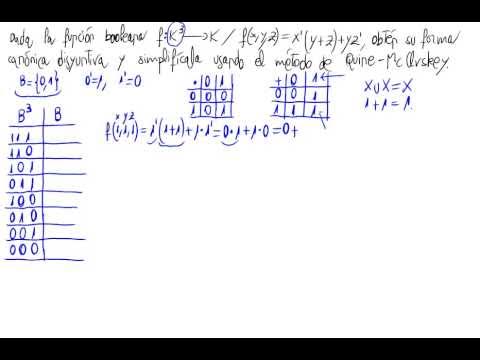 Dada la función booleana f: K³ → K / f(x,y,z) = x'(y+z)+yz', obtén su forma
canónica disyuntiva y simplifícala usando el método de Quine-McClusky.
B = {0,1} 0'=1, 1'=0
· 0 1
0 0 0
1 0 1
+ 0 1
0 0 1
1 1 1
x∪x = x
1+1 = 1
B³ B
x y z
f(1,1,1) = 1'(1+1)+1·1' = 0·1+1·0 = 0+
1 1 1
1 1 0
1 0 1
0 1 1
1 0 0
0 1 0
0 0 1
0 0 0